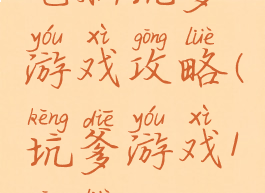 yóu xì gōng lüè
游戏攻略(
kēng diē yóu xì
坑爹游戏1